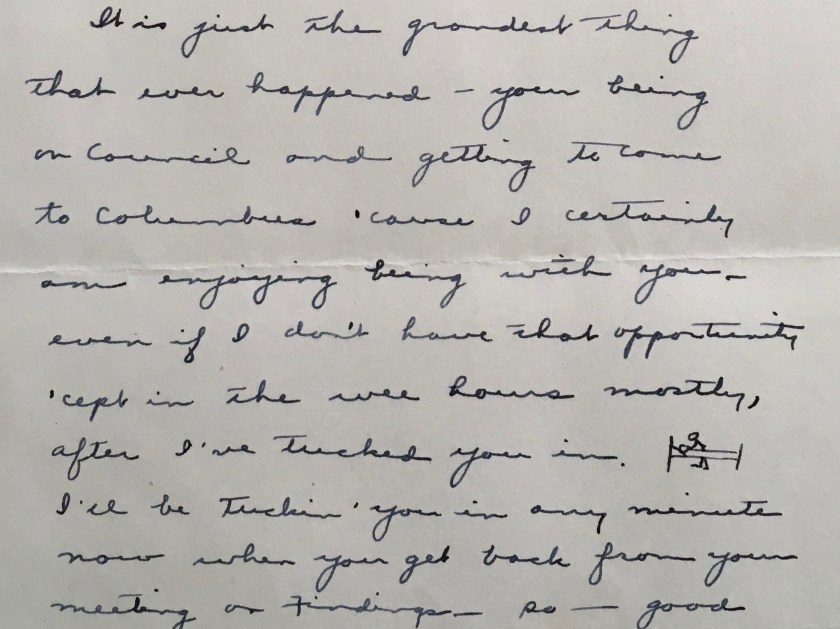 It is just the grandest thing
that ever happened – your being
on Council and getting to come
to Columbus 'cause I certainly
am enjoying being with you –
even if I don't have that opportunity
'cept in the wee hours mostly,
after I've tucked you in.
I'll be tuckin' you in any minute
now when you get back from your
meeting on Findings – so — good